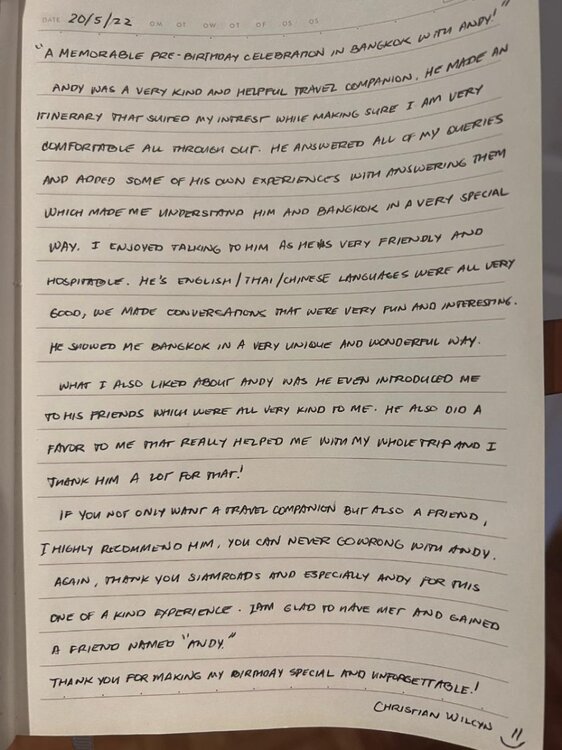 DATE 20/5/22
"A MEMORABLE PRE-BIRTHDAY CELEBRATION IN BANGKOK WITH ANDY!"
ANDY WAS A VERY KIND AND HELPFUL TRAVEL COMPANION. HE MADE AN
ITINERARY THAT SUITED MY INTREST WHILE MAKING SURE I AM VERY
COMFORTABLE ALL THROUGH OUT. HE ANSWERED ALL OF MY QUERIES
AND ADDED SOME OF HIS OWN EXPERIENCES WITH ANSWERING THEM
WHICH MADE ME UNDERSTAND HIM AND BANGKOK IN A VERY SPECIAL
WAY. I ENJOYED TALKING TO HIM AS HE IS VERY FRIENDLY AND
HOSPITABLE. HE'S ENGLISH/THAI/CHINESE LANGUAGES WERE ALL VERY
GOOD, WE MADE CONVERSATIONS THAT WERE VERY FUN AND INTERESTING.
HE SHOWED ME BANGKOK IN A VERY UNIQUE AND WONDERFUL WAY.
WHAT I ALSO LIKED ABOUT ANDY WAS HE EVEN INTRODUCED ME
TO HIS FRIENDS WHICH WERE ALL VERY KIND TO ME. HE ALSO DID A
FAVOR TO ME THAT REALLY HELPED ME WITH MY WHOLE TRIP AND I
THANK HIM A LOT FOR THAT!
IF YOU NOT ONLY WANT A TRAVEL COMPANION BUT ALSO A FRIEND,
I HIGHLY RECOMMEND HIM, YOU CAN NEVER GO WRONG WITH ANDY.
AGAIN, THANK YOU SIAMROADS AND ESPECIALLY ANDY FOR THIS
ONE OF A KIND EXPERIENCE. I AM GLAD TO HAVE MET AND GAINED
A FRIEND NAMED "ANDY."
THANK YOU FOR MAKING MY BIRTHDAY SPECIAL AND UNFORGETTABLE!
CHRISTIAN WILCYN